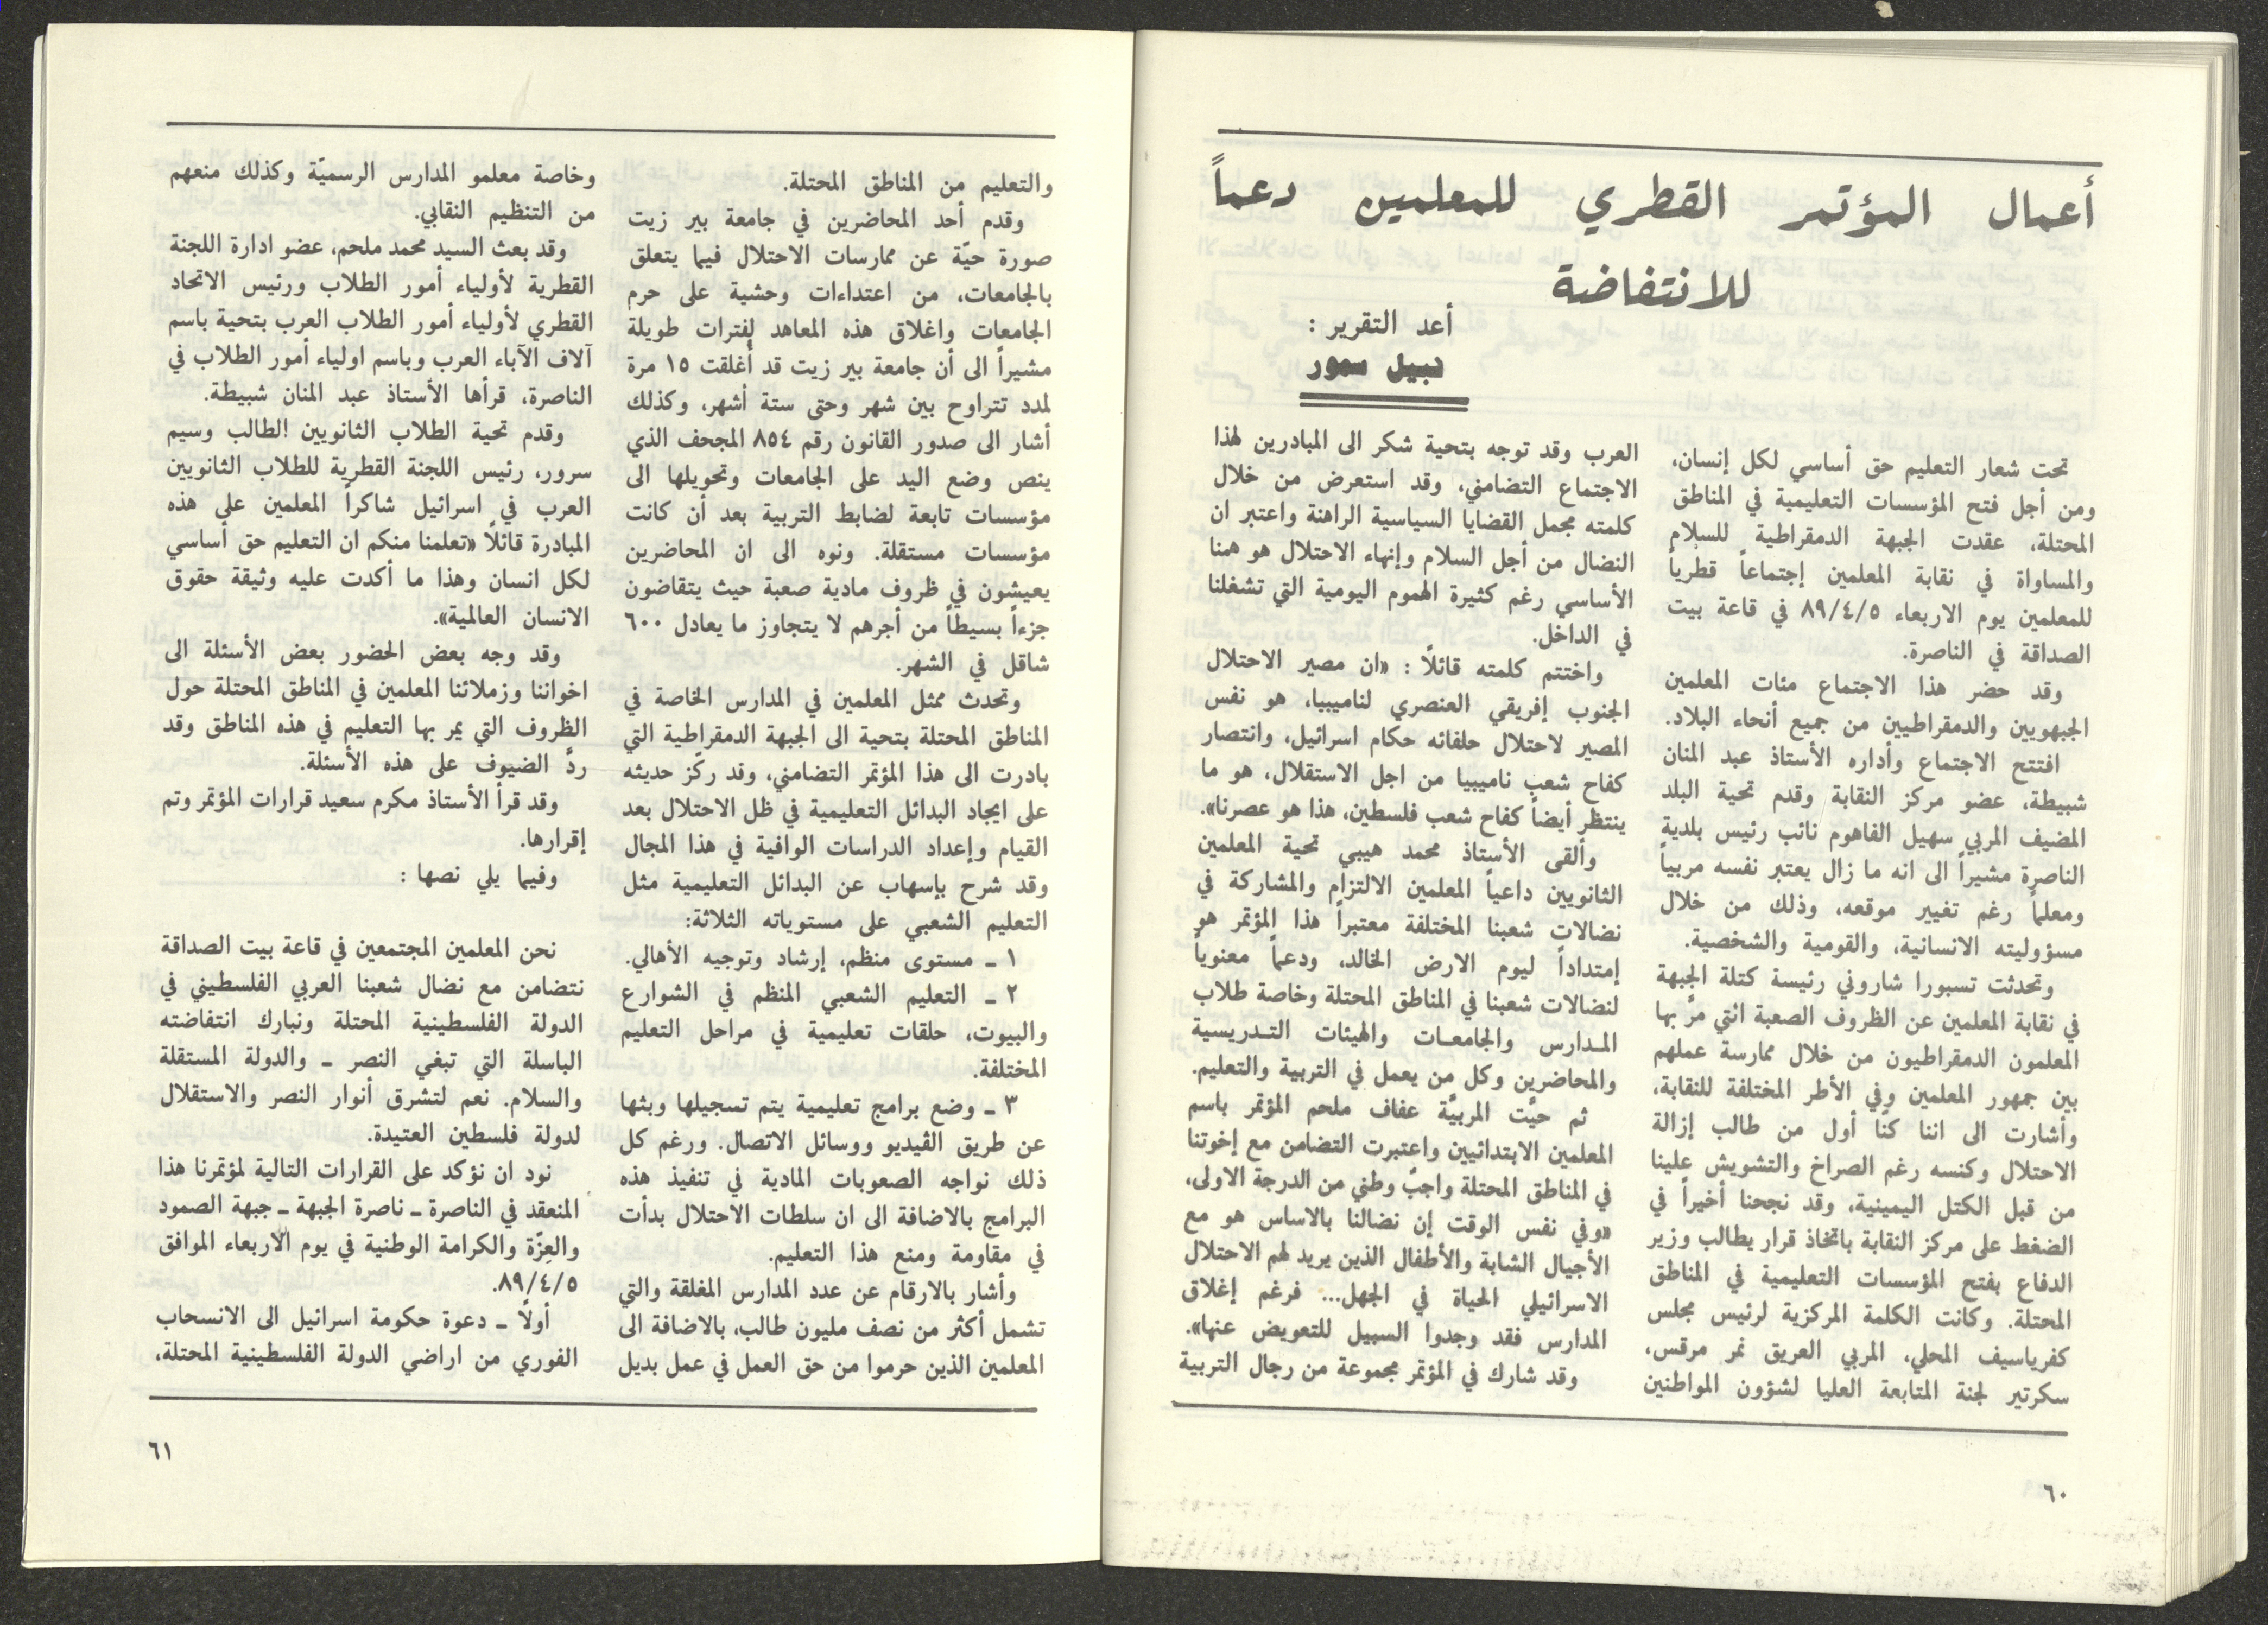 أعمال المؤتمر القطري للمعلمين دعماً
للانتفاضة
أعد التقرير :
نبيل سمور
تحت شعار التعليم حق أساسي لكل إنسان،
ومن أجل فتح المؤسسات التعليمية في المناطق
المحتلة، عقدت الجبهة الدمقراطية للسلام
والمساواة في نقابة المعلمين إجتماعاً قطرياً
للمعلمين يوم الاربعاء ٨٩/٤/٥ في قاعة بيت
الصداقة في الناصرة.
وقد حضر هذا الاجتماع مئات المعلمين
الجبهويين والدمقراطيين من جميع أنحاء البلاد.
افتتح الاجتماع وأداره الأستاذ عبد المنان
شبيطة، عضو مركز النقابة وقدم تحية البلد
المضيف المربي سهيل الفاهوم نائب رئيس بلدية
الناصرة مشيراً الى انه ما زال يعتبر نفسه مربياً
ومعلماً رغم تغيير موقعه، وذلك من خلال
مسؤوليته الانسانية، والقومية والشخصية.
وتحدثت تسبورا شاروني رئيسة كتلة الجبهة
في نقابة المعلمين عن الظروف الصعبة التي مرَّ بها
المعلمون الدمقراطيون من خلال ممارسة عملهم
بين جمهور المعلمين وفي الأطر المختلفة للنقابة،
وأشارت الى اننا كنّا أول من طالب إزالة
الاحتلال وكنسه رغم الصراخ والتشويش علينا
من قبل الكتل اليمينية، وقد نجحنا أخيراً في
الضغط على مركز النقابة باتخاذ قرار يطالب وزير
الدفاع بفتح المؤسسات التعليمية في المناطق
المحتلة. وكانت الكلمة المركزية لرئيس مجلس
كفرياسيف المحلي، المربي العريق نمر مرقس،
سكرتير لجنة المتابعة العليا لشؤون المواطنين
العرب وقد توجه بتحية شكر الى المبادرين لهذا
الاجتماع التضامني، وقد استعرض من خلال
كلمته مجمل القضايا السياسية الراهنة واعتبر ان
النضال من أجل السلام وإنهاء الاحتلال هو همنا
الأساسي رغم كثيرة الهموم اليومية التي تشغلنا
في الداخل.
واختتم كلمته قائلاً : «ان مصير الاحتلال
الجنوب إفريقي العنصري لناميبيا، هو نفس
المصير لاحتلال حلفائه حكام اسرائيل، وانتصار
كفاح شعب ناميبيا من اجل الاستقلال، هو ما
ينتظر أيضاً كفاح شعب فلسطين، هذا هو عصرنا».
وألقى الأستاذ محمد هيبي تحية المعلمين
الثانويين داعياً المعلمين الالتزام والمشاركة في
نضالات شعبنا المختلفة معتبراً هذا المؤتمر هو
إمتداداً ليوم الارض الخالد، ودعماً معنوياً
لنضالات شعبنا في المناطق المحتلة وخاصة طلاب
المدارس والجامعات والهيئات التدريسية
والمحاضرين وكل من يعمل في التربية والتعليم.
ثم حيَّت المربيَّة عفاف ملحم المؤتمر باسم
المعلمين الابتدائيين واعتبرت التضامن مع إخوتنا
في المناطق المحتلة واجبٌ وطني من الدرجة الاولى،
«وفي نفس الوقت إن نضالنا بالاساس هو مع
الأجيال الشابة والأطفال الذين يريد لهم الاحتلال
الاسرائيلي الحياة في الجهل... فرغم إغلاق
المدارس فقد وجدوا السبيل للتعويض عنها».
وقد شارك في المؤتمر مجموعة من رجال التربية
٦٠
والتعليم من المناطق المحتلة.
وقدم أحد المحاضرين في جامعة بير زيت
صورة حيّة عن ممارسات الاحتلال فيما يتعلق
بالجامعات، من اعتداءات وحشية على حرم
الجامعات واغلاق هذه المعاهد لفترات طويلة
مشيراً الى أن جامعة بير زيت قد أُغلقت ١٥ مرة
لمدد تتراوح بين شهر وحتى ستة أشهر، وكذلك
أشار الى صدور القانون رقم ٨٥٤ المجحف الذي
ينص وضع اليد على الجامعات وتحويلها الى
مؤسسات تابعة لضابط التربية بعد أن كانت
مؤسسات مستقلة. ونوه الى ان المحاضرين
يعيشون في ظروف مادية صعبة حيث يتقاضون
جزءاً بسيطاً من أجرهم لا يتجاوز ما يعادل ٦٠٠
شاقل في الشهر.
وتحدث ممثل المعلمين في المدارس الخاصة في
المناطق المحتلة بتحية الى الجبهة الدمقراطية التي
بادرت الى هذا المؤتمر التضامني، وقد ركّز حديثه
على ايجاد البدائل التعليمية في ظل الاحتلال بعد
القيام وإعداد الدراسات الوافية في هذا المجال
وقد شرح بإسهاب عن البدائل التعليمية مثل
التعليم الشعبي على مستوياته الثلاثة:
١ ـ مستوى منظم، إرشاد وتوجيه الأهالي.
٢ ـ التعليم الشعبي المنظم في الشوارع
والبيوت، حلقات تعليمية في مراحل التعليم
المختلفة.
٣ ـ وضع برامج تعليمية يتم تسجيلها وبثها
عن طريق الڤيديو ووسائل الاتصال. ورغم كل
ذلك نواجه الصعوبات المادية في تنفيذ هذه
البرامج بالاضافة الى ان سلطات الاحتلال بدأت
في مقاومة ومنع هذا التعليم.
وأشار بالارقام عن عدد المدارس المغلقة والتي
تشمل أكثر من نصف مليون طالب، بالاضافة الى
المعلمين الذين حرموا من حق العمل في عمل بديل
وخاصة معلمو المدارس الرسميّة وكذلك منعهم
من التنظيم النقابي.
وقد بعث السيد محمد ملحم، عضو ادارة اللجنة
القطرية لأولياء أمور الطلاب ورئيس الاتحاد
القطري لأولياء أمور الطلاب العرب بتحية باسم
آلاف الآباء العرب وباسم اولياء أمور الطلاب في
الناصرة، قرأها الأستاذ عبد المنان شبيطة.
وقدم تحية الطلاب الثانويين الطالب وسيم
سرور، رئيس اللجنة القطرية للطلاب الثانويين
العرب في اسرائيل شاكراً المعلمين على هذه
المبادرة قائلاً «تعلمنا منكم ان التعليم حق أساسي
لكل انسان وهذا ما أكدت عليه وثيقة حقوق
الانسان العالمية».
وقد وجه بعض الحضور بعض الأسئلة الى
اخواننا وزملائنا المعلمين في المناطق المحتلة حول
الظروف التي يمر بها التعليم في هذه المناطق وقد
ردَّ الضيوف على هذه الأسئلة.
وقد قرأ الأستاذ مكرم سعيد قرارات المؤتمر وتم
إقرارها.
وفيما يلي نصها :
نحن المعلمين المجتمعين في قاعة بيت الصداقة
نتضامن مع نضال شعبنا العربي الفلسطيني في
الدولة الفلسطينية المحتلة ونبارك انتفاضته
الباسلة التي تبغي النصر ـ والدولة المستقلة
والسلام. نعم لتشرق أنوار النصر والاستقلال
لدولة فلسطين العتيدة.
نود ان نؤكد على القرارات التالية لمؤتمرنا هذا
المنعقد في الناصرة ـ ناصرة الجبهة ـ جبهة الصمود
والعِزّة والكرامة الوطنية في يوم الاربعاء الموافق
٨٩/٤/٥.
أولاً ـ دعوة حكومة اسرائيل الى الانسحاب
الفوري من اراضي الدولة الفلسطينية المحتلة،
٦١